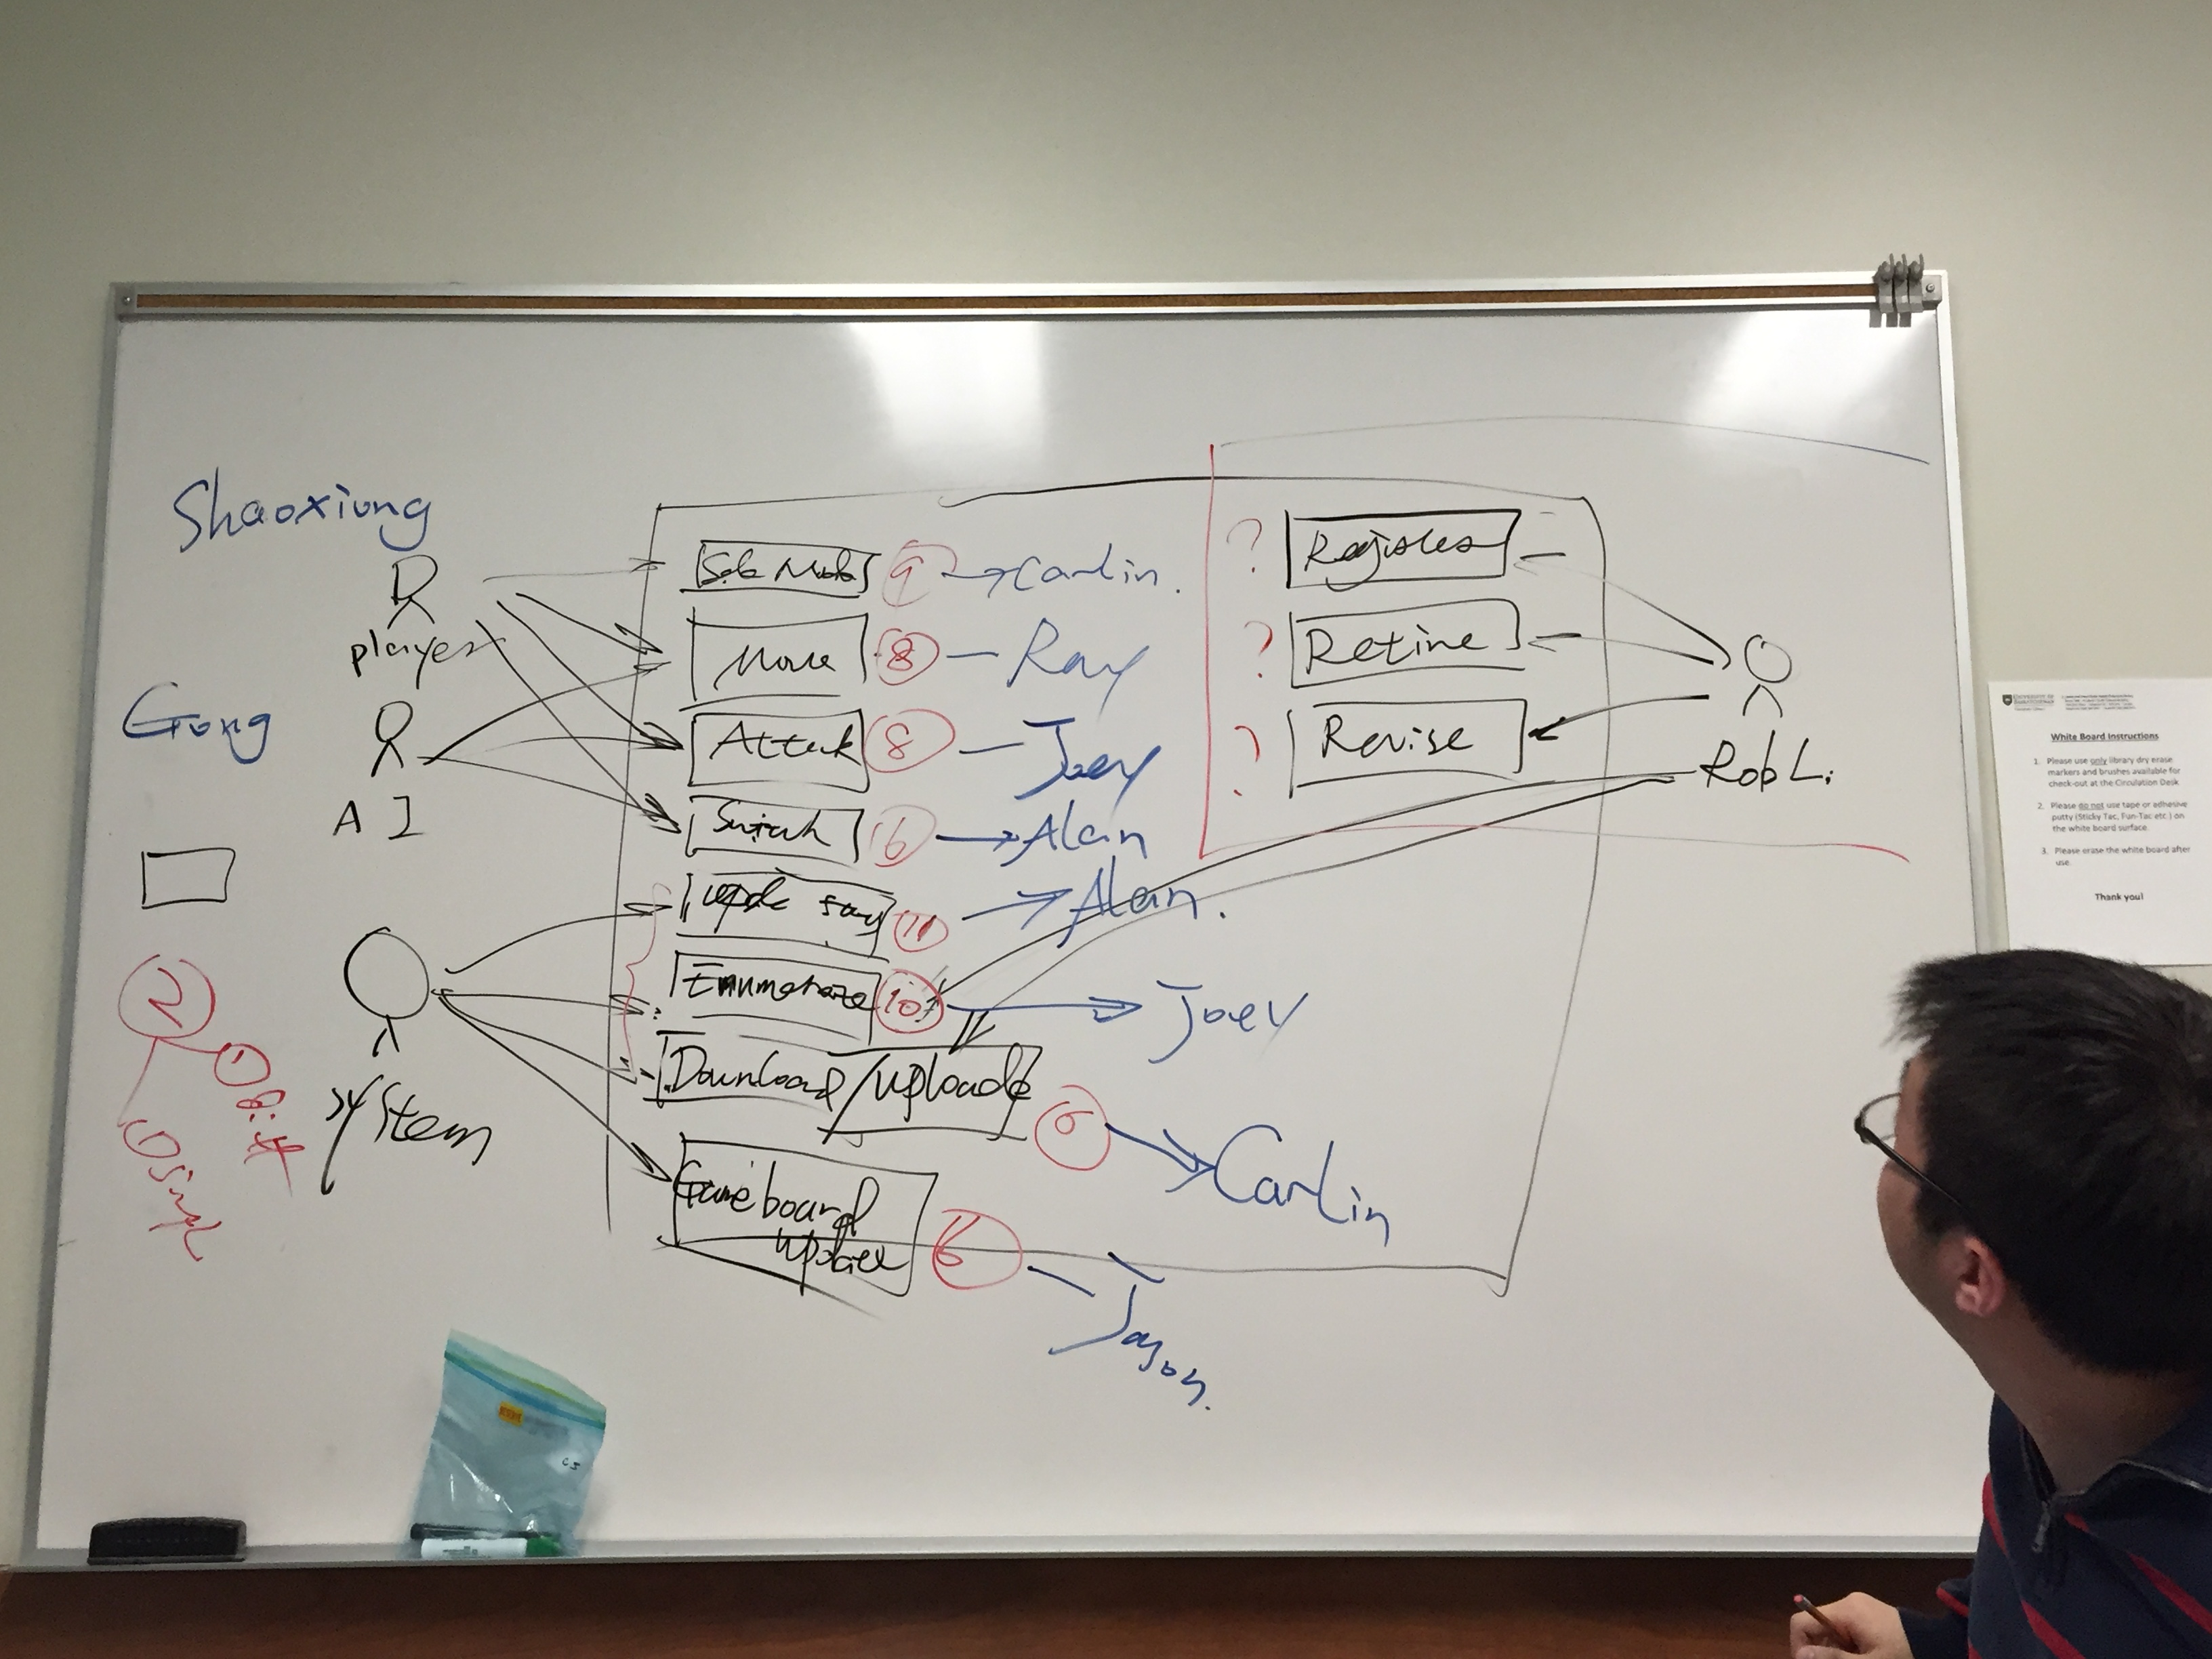 Shaoxiung
player
Gong
A I
system
2
1
1
9 Carlin.
Move 8 Ray
Attack 8 Joey
6 Alan
11 Alan.
10 Joey
Download/Uploade
Carlin
Gameboard
6
Jason.
? Register
? Retire
? Revise
Rob Li
UNIVERSITY OF
White Board Instructions
1. Please use only library dry erase
markers and brushes available for
check-out at the Circulation Desk
2. Please do not use tape or adhesive
putty (Sticky Tac, Fun-Tac etc.) on
the white board surface.
3. Please erase the white board after
use.
Thank you!